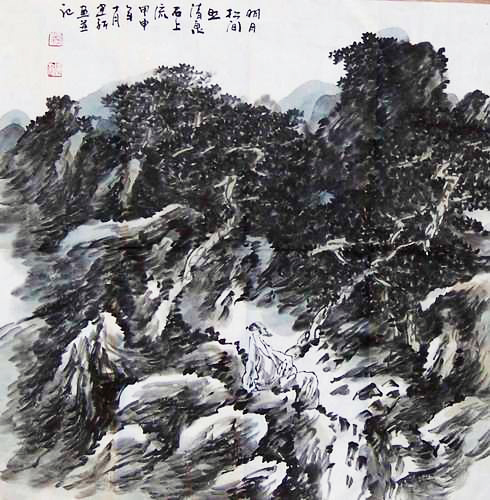 明月
松间
照
清泉
石上
流
甲申
年
月
画并
记